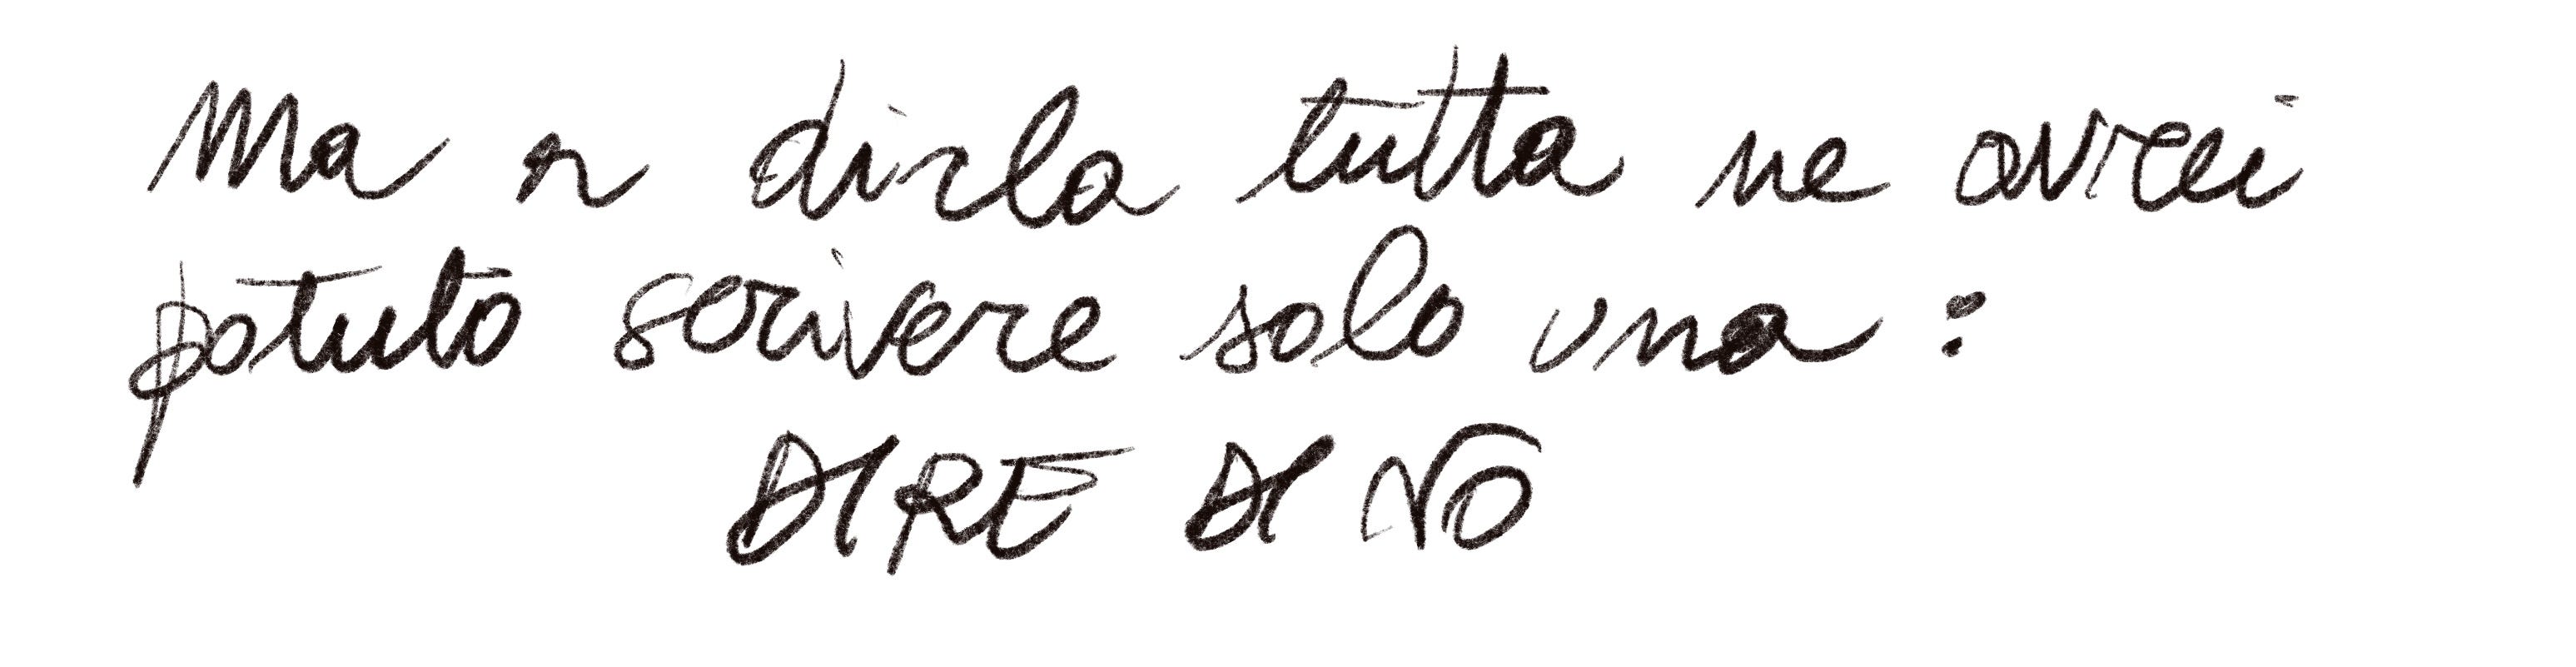 Ma a dirla tutta ne avrei
potuto scrivere solo una:
DIRE DI NO